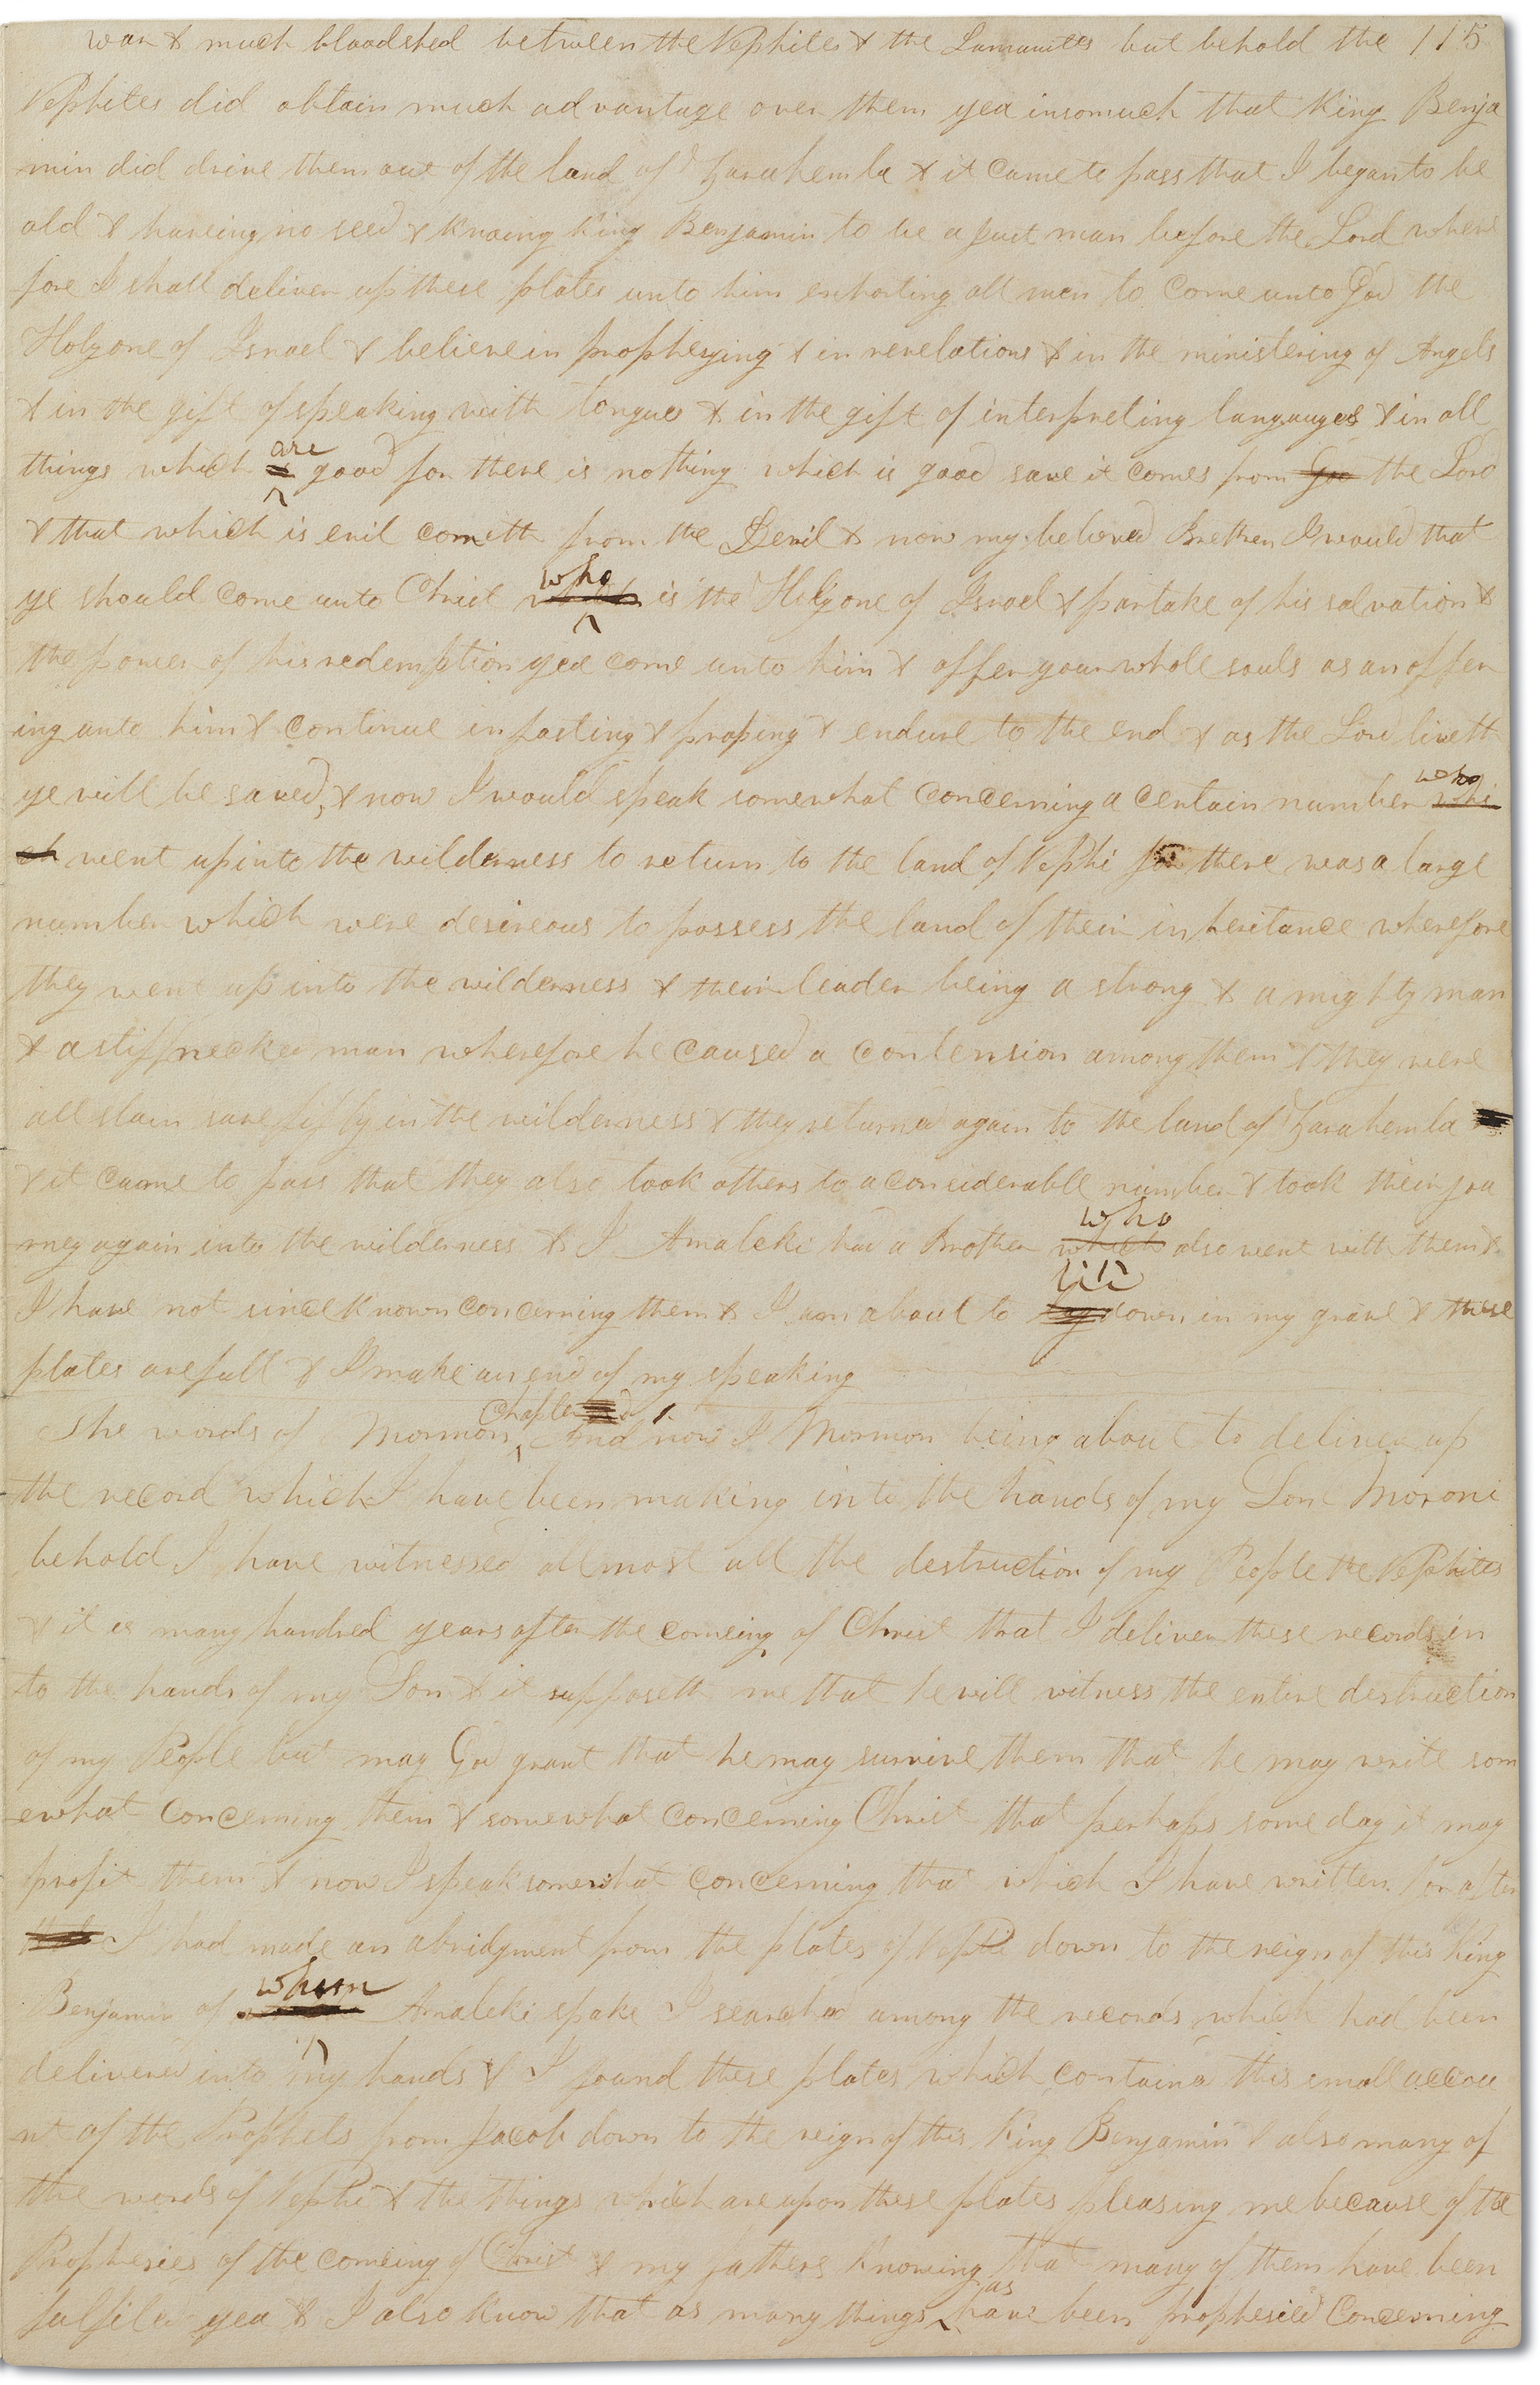 war & much bloodshed between the Nephites & the Lamanites but behold the 115
Nephites did obtain much advantage over them yea insomuch that King Benja
min did drive them out of the land of Zarahemla & it came to pass that I began to be
old & haveing no seed & knowing King Benjamin to be a just man before the Lord where
fore I shall deliver up these plates unto him exhorting all men to come unto God the
Holy one of Israel & believe in prophesying & in revelations & in the ministering of Angels
& in the gift of speaking with tongues & in the gift of interpreting langauges & in all
are
things which good for there is nothing which is good save it comes from God the Lord
& that which is evil cometh from the Devil & now my beloved Brethren I would that
who
ye should come unto Christ which is the Holy one of Israel & partake of his salvation &
the power of his redemption yea come unto him & offer your whole souls as an offer
ing unto him & continue in fasting & praying & endure to the end & as the Lord liveth
who
ye will be saved, & now I would speak somewhat concerning a certain number whi
ch went up into the wilderness to return to the land of Nephi for there was a large
number which were desireous to possess the land of their inheritance wherefore
they went up into the wilderness & their leader being a strong & a mighty man
& a stiffnecked man wherefore he caused a contension among them & they were
all slain save fifty in the wilderness & they returned again to the land of Zarahemla
& it came to pass that they also took others to a considerable number & took their jou
who
rney again into the wilderness & I Amaleki had a Brother which also went with them &
lie
I have not since known concerning them & I am about to lay down in my grave & these
plates are full & I make an end of my speaking
Chapter
The words of Mormon, And now I Mormon being about to deliver up
the record which I have been making into the hands of my Son Moroni
behold I have witnessed allmost all the destruction of my People the Nephites
& it is many hundred years after the comeing of Christ that I deliver these records in
to the hands of my Son & it supposeth me that he will witness the entire destruction
of my People but may God grant that he may survive them that he may write som
ewhat concerning them & somewhat concerning Christ that perhaps some day it may
profit them & now I speak somewhat concerning that which I have written for after
I had made an abridgment from the plates of Nephi down to the reign of this King
whom
Benjamin of Amaleki spake I searched among the records which had been
delivered into my hands & I found these plates which contained this small accou
nt of the Prophets from Jacob down to the reign of this King Benjamin & also many of
the words of Nephi & the things which are upon these plates pleasing me because of the
Prophesies of the comeing of Christ & my fathers knowing that many of them have been
as
fulfiled yea & I also know that as many things have been prophesied concerning